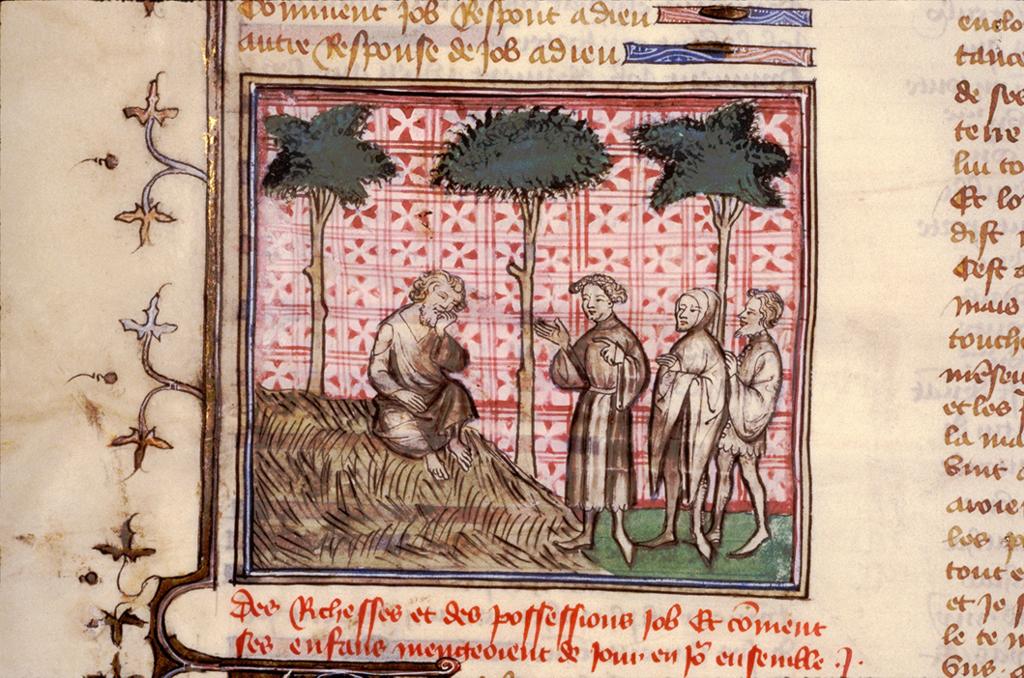 Comment Job Respont a dieu
autre Response de Job a dieu
Des Richesses et des possessions Job Et cõment
ses enfans mengeoient de jour en jõ ensemble .j.
enclo
tance
de so
terre
lui to
Et lo
dist
Cest a
mais
touche
mẽseu
et les
la ma
vint a
avoie
les p
tout e
et Je s
le te m